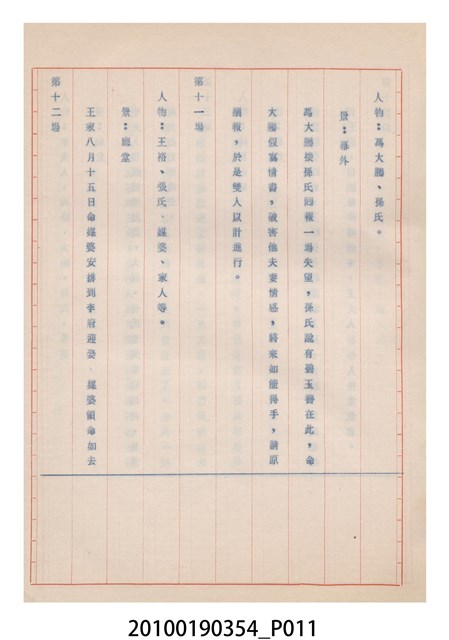 人物：馮大鵬、孫氏。
景：郊外
馮大鵬接孫氏回報一場失望，孫氏說有碧玉簪在此，命
大鵬假寫情書，破害他夫妻情感，將來如能得手，請原
酬報，於是雙人以計進行。
第十一場
人物：王裕、張氏、媒婆、家人等。
景：廳堂
王家八月十五日命媒婆安排到李府迎娶，媒婆領命如去
第十二場
20100190354_P011